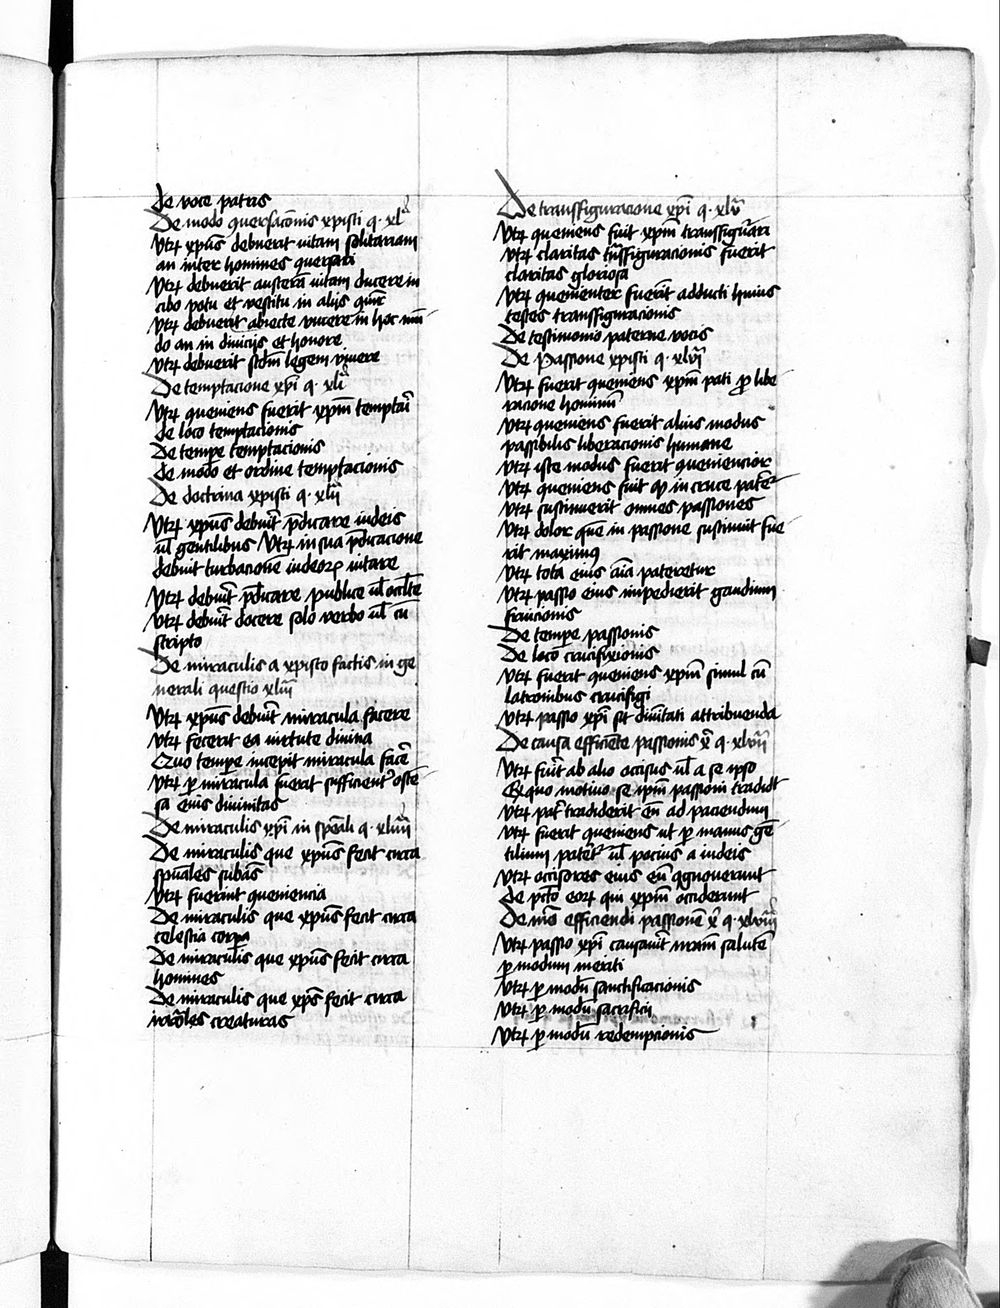 de voce patris
De modo ꝯuersac̄onis xpisti q. xlª
Vtꝝ xp̄us debuerit uitam solitariam
an inter homines ꝯuersari
Vtꝝ debuerit austerā uitam ducere in
cibo potu et vestitu in alijs
Vtꝝ debuerit abiecte viuere in hoc mū
do an in diuicijs et honore
Vtꝝ debuerit scdm̄ legem viuere
De temptacione xp̄i q. xli
Vtꝝ ꝯueniens fuerit xp̄m temptari
de loco temptacionis
De tempe temptacionis
de modo et ordine temptacionis
De doctrina xpisti q. xlij
Vtꝝ xp̄us debuit p̄dicare iudeis
ul̄ gentilibus Vtꝝ in sua p̄dicacione
debuit turbacionē iudeoꝝ uitare
Vtꝝ debuit p̄dicare publice ul̄ occulte
Vtꝝ debuit docere solo verbo ul̄ cū
scripto
De miraculis a xpisto factis in ge
nerali questio xliij
Vtꝝ xp̄us debuit miracula facere
Vtꝝ fecerit ea uirtute diuina
Quo tempe incepit miracula facē
Vtꝝ ꝑ miracula fuerit sufficient᷒ oste
sa eius diuinitas
De miraculis xp̄i in spēali q. xliiij
De miraculis que xp̄us fecit circa
sp̄uales sub̄as
Vtꝝ fuerint ꝯueniencia
De miraculis que xp̄us fecit circa
celestia corpa
De miraculis que xp̄us fecit circa
homines
De miraculis que xp̄s fecit circa
irr̄oles creaturas
De transfiguracione xp̄i q. xlv
Vtꝝ ꝯueniens fuit xp̄m transfigurari
Vtꝝ claritas t̄nsfiguracionis fuerit
claritas gloriosa
Vtꝝ ꝯuenienter fuerit adducti huius
testes transfiguracionis
De testimonio paterne vocis
De Passione xpisti q. xlvj
Vtꝝ fuerit ꝯueniens xp̄m pati ꝓ libe
racione hominū
Vtꝝ ꝯueniens fuerit alius modus
passibilis liberacionis humane
Vtꝝ iste modus fuerit ꝯueniencior
Vtꝝ ꝯueniens fuit ꝙ in cruce patet᷒
Vtꝝ sustinuerit omnes passiones
Vtꝝ dolor quē in passione sustinuit fue
rit maximꝯ
Vtꝝ tota eius aīa pateretur
Vtꝝ passio eius impedierit gaudium
fruicionis
De tempe passionis
De loco crucifixionis
Vtꝝ fuerit ꝯueniens xp̄m simul cū
latronibus crucifigi
Vtꝝ passio xp̄i sit diuitati attribuenda
De causa efficiente passionis x̄ q. xlvij
Vtꝝ fuit ab alio occisus ul̄ a se ipso
Ex quo motiuo se ip̄m passioni tradidit
Vtꝝ pat᷒ tradiderit eū ad paciendum
Vtꝝ fuerit ꝯueniens ut ꝑ manus gē
tilium patet᷒ ul̄ pocius a iudeis
Vtꝝ occisores eius eū ꝯgnouerunt
de pcto eoꝝ qui xp̄m occiderunt
De mō efficiendi passionē x̄ q. xlviij
Vtꝝ passio xp̄i causauit nr̄am salutē
ꝑ modum meriti
Vtꝝ ꝑ modū sanctificacionis
Vtꝝ ꝑ modū sacrificij
Vtꝝ ꝑ modū redempcionis